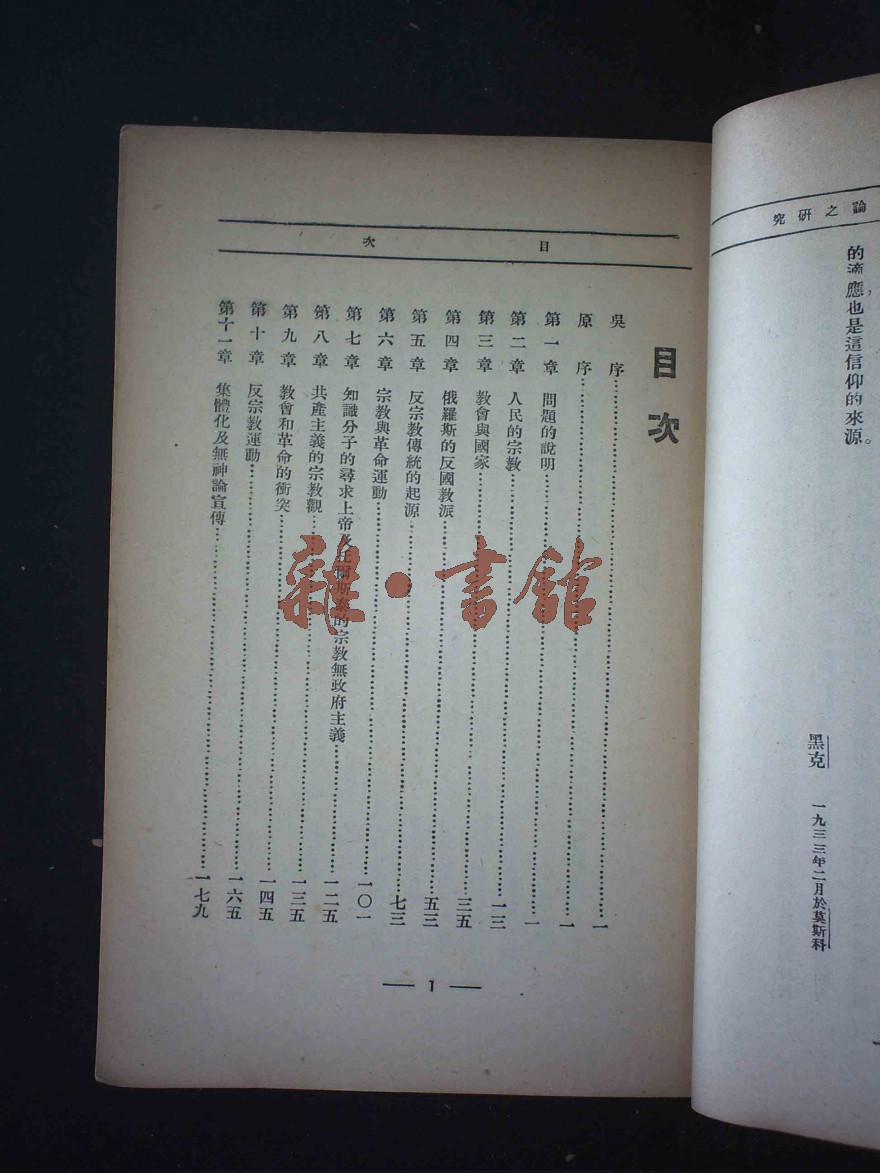 論之研究
的適應，也是這信仰的來源。
黑克　一九三三年二月於莫斯科
目次
目次
吳序……一
原序……一
第一章　問題的說明……一
第二章　人民的宗教……一三
第三章　教會與國家……三五
第四章　俄羅斯的反國教派……五三
第五章　反宗教傳統的起源……七三
第六章　宗教與革命運動……一〇一
第七章　知識分子的尋求上帝及托爾斯泰的宗教無政府主義……一二五
第八章　共產主義的宗教觀……一三五
第九章　教會和革命的衝突……一四五
第十章　反宗教運動……一六五
第十一章　集體化及無神論宣傳……一七九
— 1 —
雜·書館